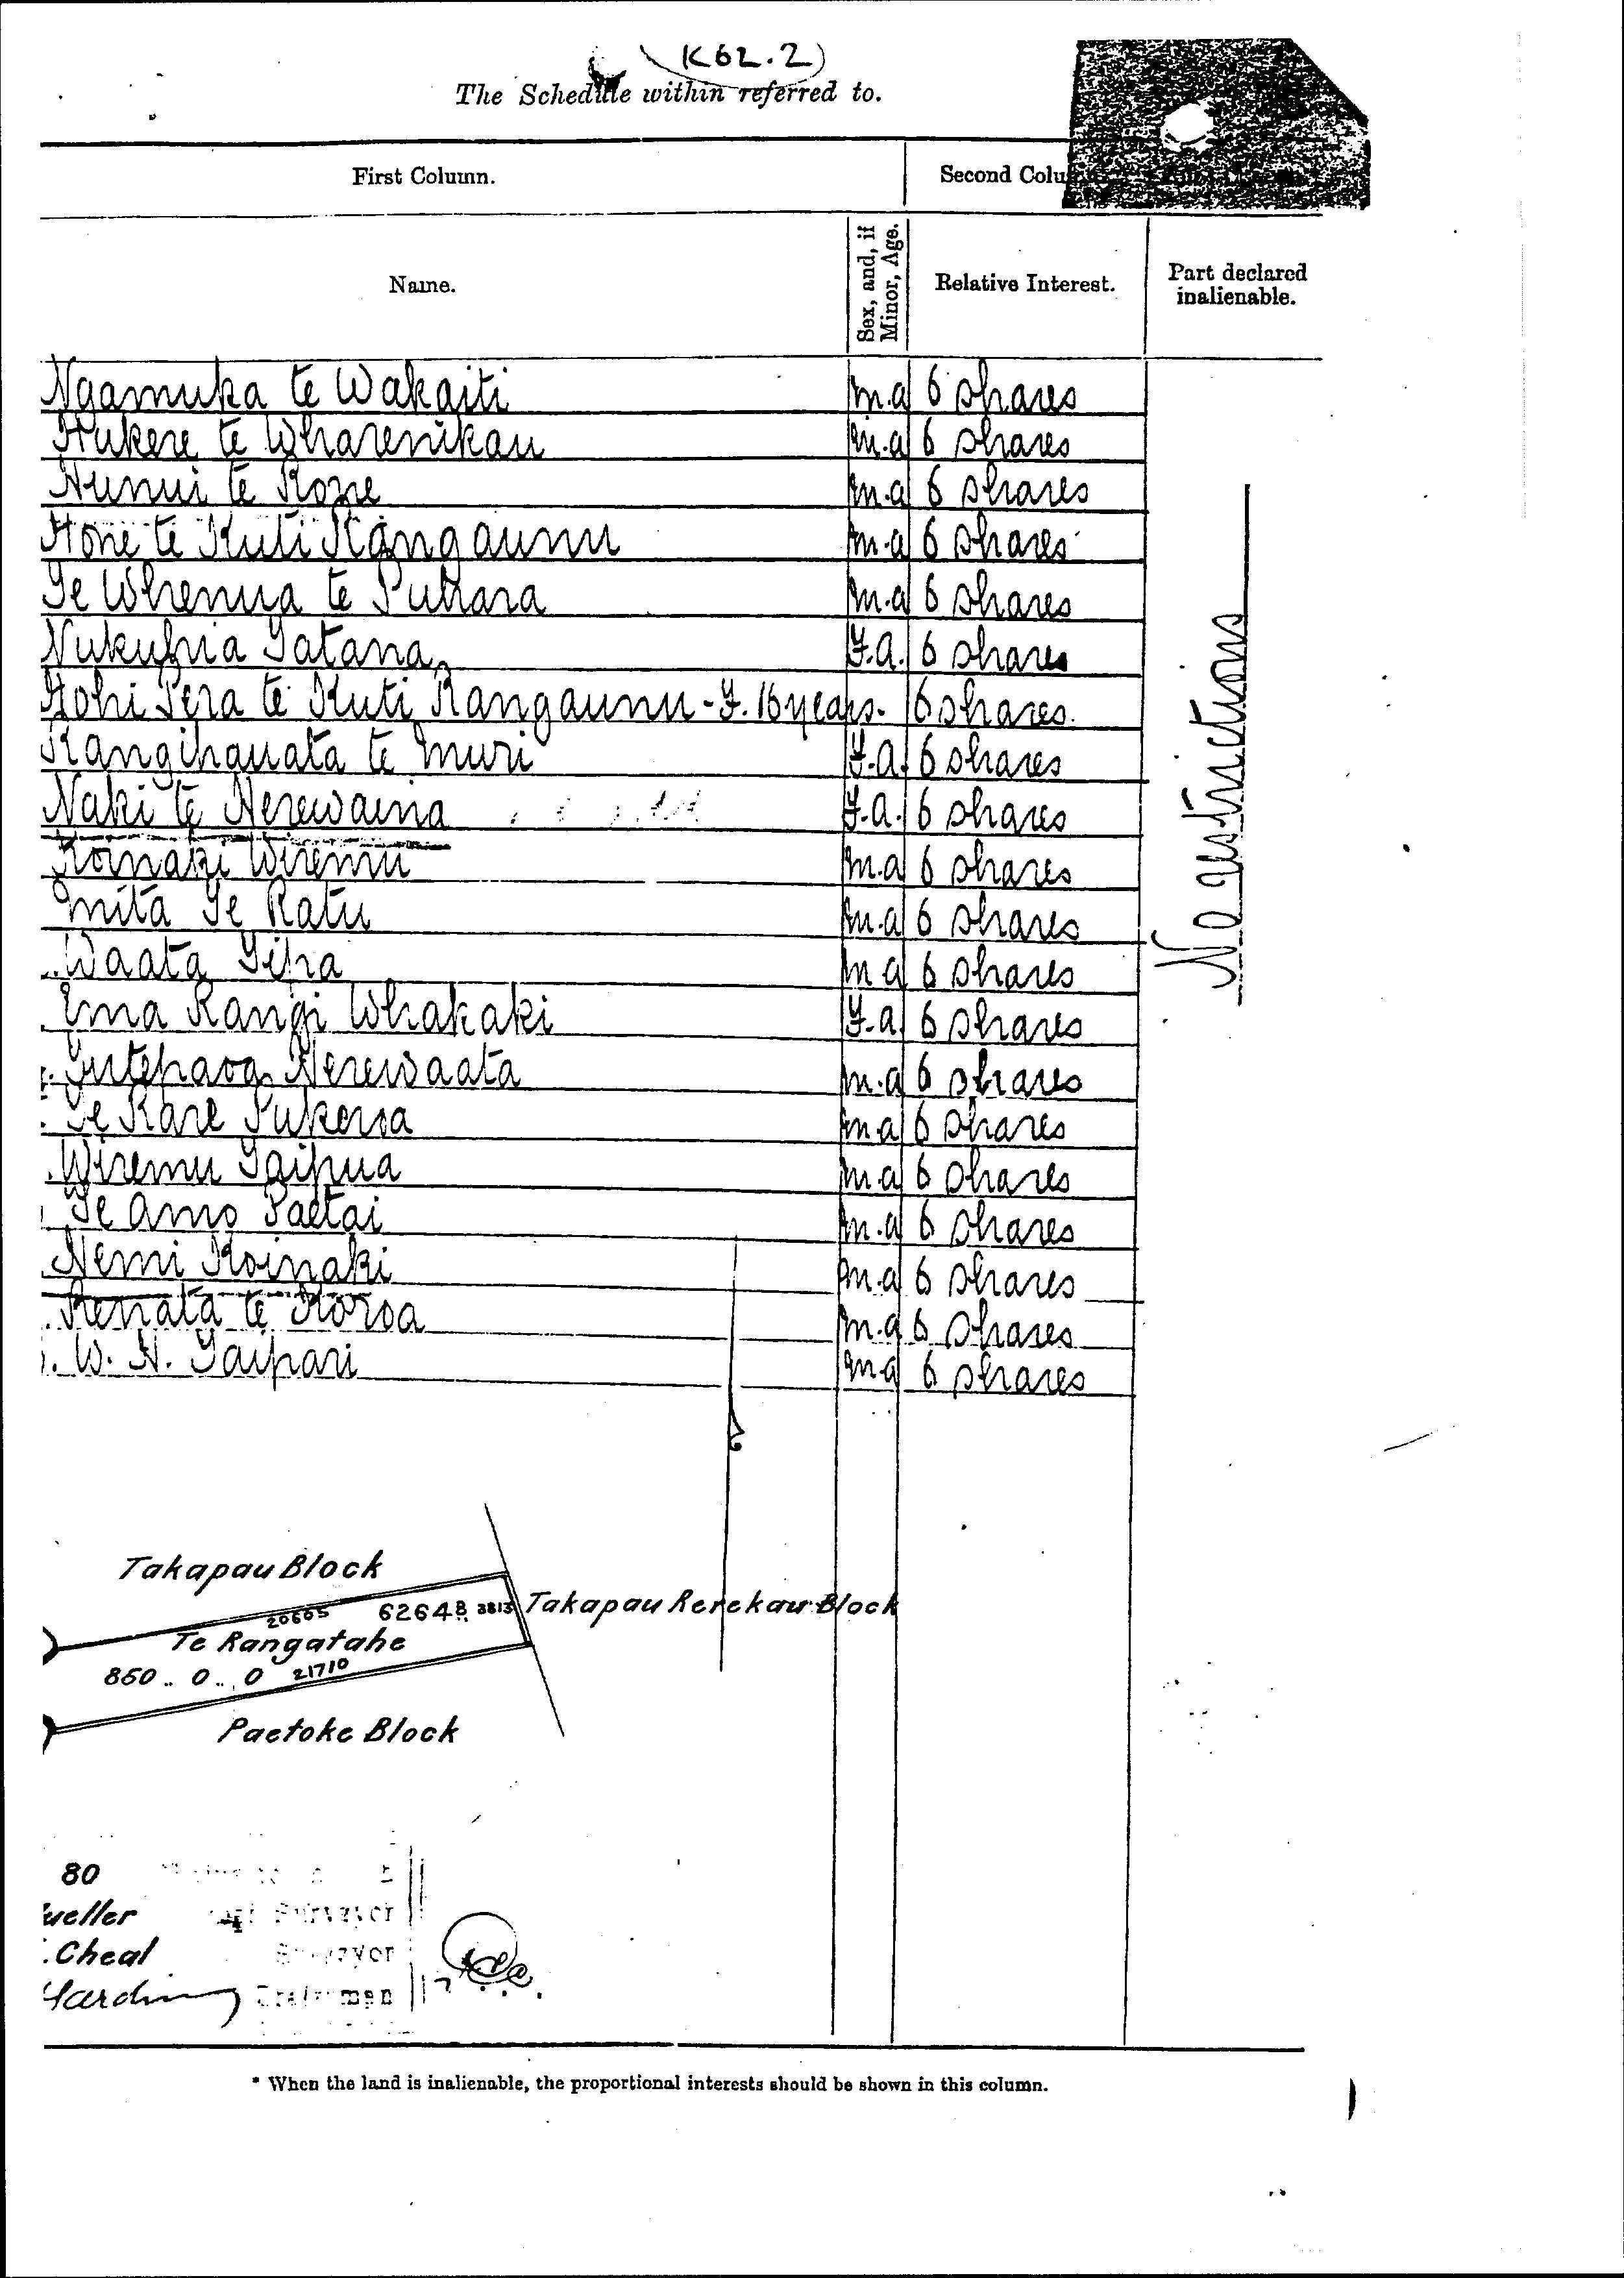 K62.2
The Schedule within referred to.
First Column.
Second Colu
Name.
Sex, and, if Minor, Age.
Relative Interest.
Part declared inalienable.
Ngamuka te Wakaiti m.a 6 shares
Hukere te Wharenikau m.a 6 shares
Nunui te Kone m.a 6 shares
Hone te Kuti Rangaunu m.a 6 shares
Te Whenua te Puhara m.a 6 shares
Nukuhia Tatana F.a. 6 shares
Hohi Pera te Kuti Rangaunu - F. 16 years. 6 shares.
Rangihauata te Muri F.a. 6 shares
Naki te Herewaina F.a. 6 shares
Koinaki Wiremu m.a 6 shares
Mita Te Ratu m.a 6 shares
Waata Tipa m a 6 shares
Ema Rangi Whakaki F.a. 6 shares
Herewaata m.a 6 shares
Te Kare Pukeroa m a 6 shares
Wiremu Taipua m.a 6 shares
Te Amo Paetai m.a 6 shares
Nemi Koinaki m.a 6 shares
Renata te Koroa m.a 6 shares
W. H. Taipari m a 6 shares
No restrictions
Takapau Block
20605 62648 3813 Takapau Rerekau Block
Te Rangatahe
850 .. 0 .. 0 21710
Paetoke Block
80
ueller Surveyor
Cheal Surveyor
Harding
* When the land is inalienable, the proportional interests should be shown in this column.